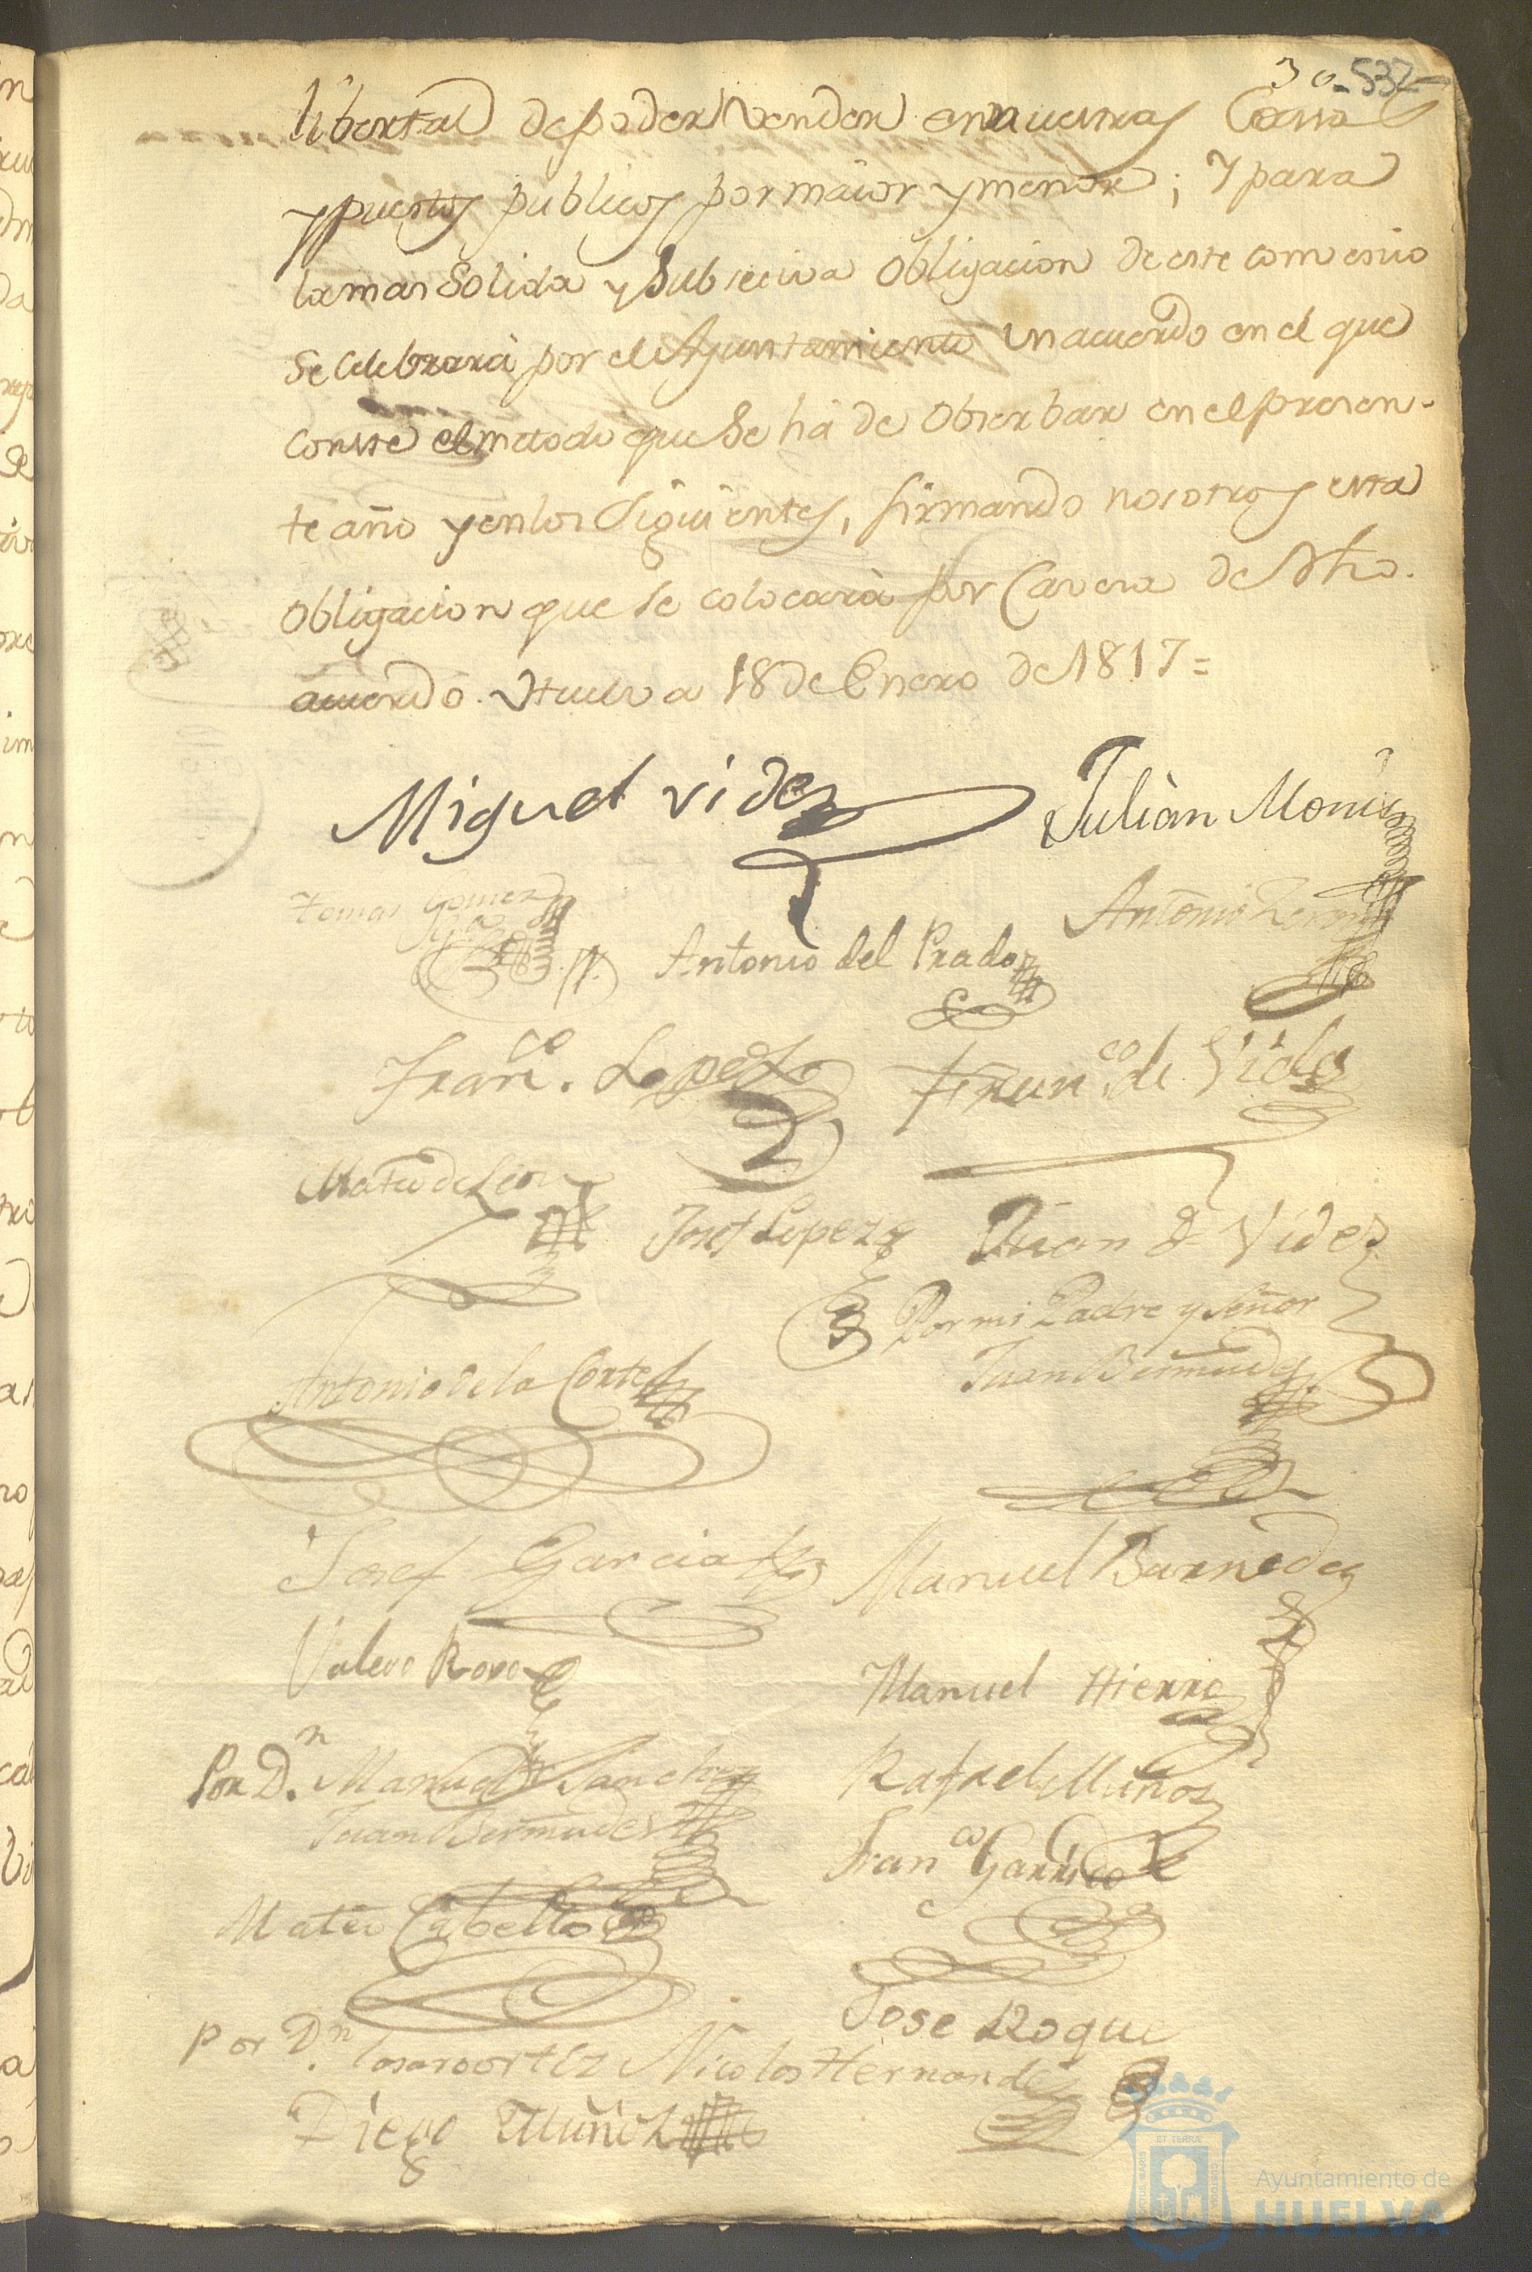 30-532
libertad de poder vender en nuestras Cassas
y puestos publicos por maior y menor; Y para
la mas Solida y Subseciva Obligacion de este comvenio
se celebrará por el Ayuntamiento un acuerdo en el que
conste el metodo que se há de Obserbar en el presen-
te año y en los Siguientes, firmando nosotros esta
Obligacion que se colocará por Cavesa de dho.
acuerdo. Huelva 18 de Enero de 1817=
Miguel videz Julián Monis
tomas Gomez Antonio
Antonio del Prado
Franco. Lopez Franco. de Vides
Mateo de Leon
Josef Lopez Juan de Vides
Por mi Padre y Señor
Antonio de la Corte Juan Bermudes
Josef Garcia Manuel Barnedes
Valero Roxo Manuel Hierro
Por Dn. Manuel Sanches Rafael Muños
Juan Bermudes
Franco Garrido
Mateo Cabello
Jose Roque
por Dn. Lasaro ortiz Nicolas Hernandes
Diego Muñoz
ET TERRÆ
Ayuntamiento de
HUELVA